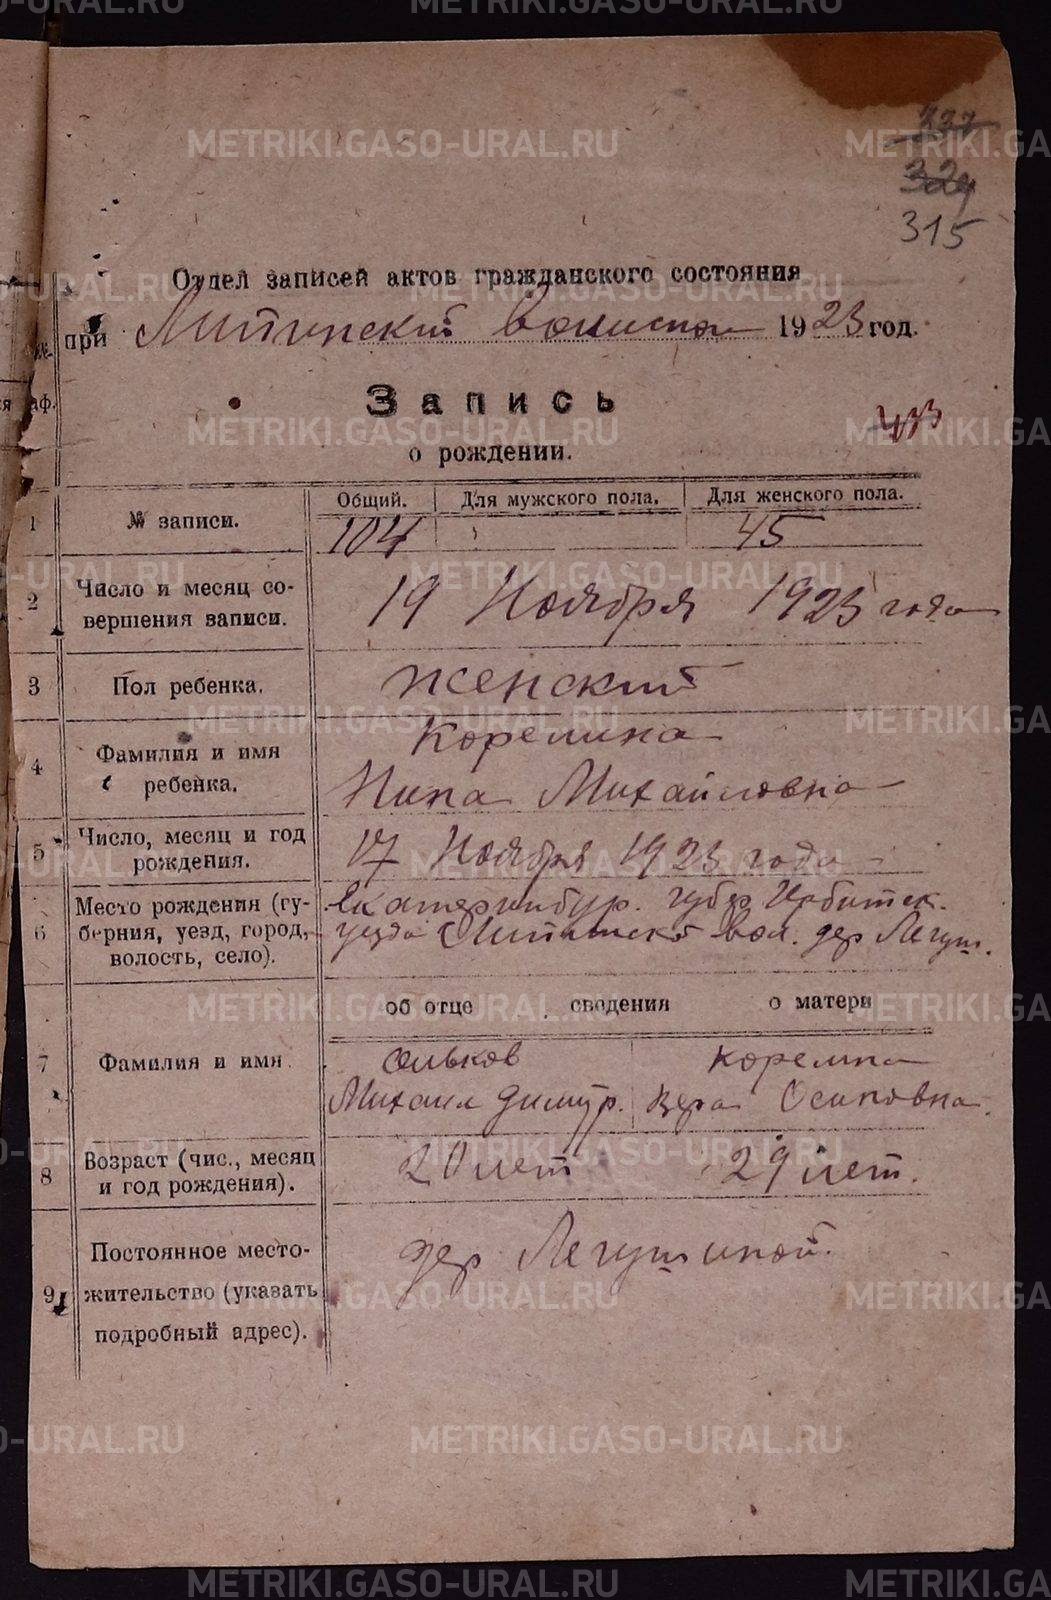 METRIKI.GASO-URAL.RU
227
324
315
Отдел записей актов гражданского состояния
при Липинский волиспол 1923 год.
Запись
433
о рождении.
Общий. Для мужского пола. Для женского пола.
1 № записи. 104 45
2 Число и месяц со-
вершения записи. 19 Ноября 1923 года
3 Пол ребенка. женский
4 Фамилия и имя
ребенка. Корелина
Нина Михайловна
5 Число, месяц и год
рождения. 17 Ноября 1923 года
6 Место рождения (гу-
берния, уезд, город,
волость, село). Екатеринбур. губер Ирбитск.
уезда вол. дер Легуш.
об отце сведения о матери
7 Фамилия и имя Сельков Корелина
Михаил Димитр. Вера Осиповна.
8 Возраст (чис., месяц
и год рождения). 20 лет 29 лет.
9 Постоянное место-
жительство (указать
подробный адрес). дер Легушиной.